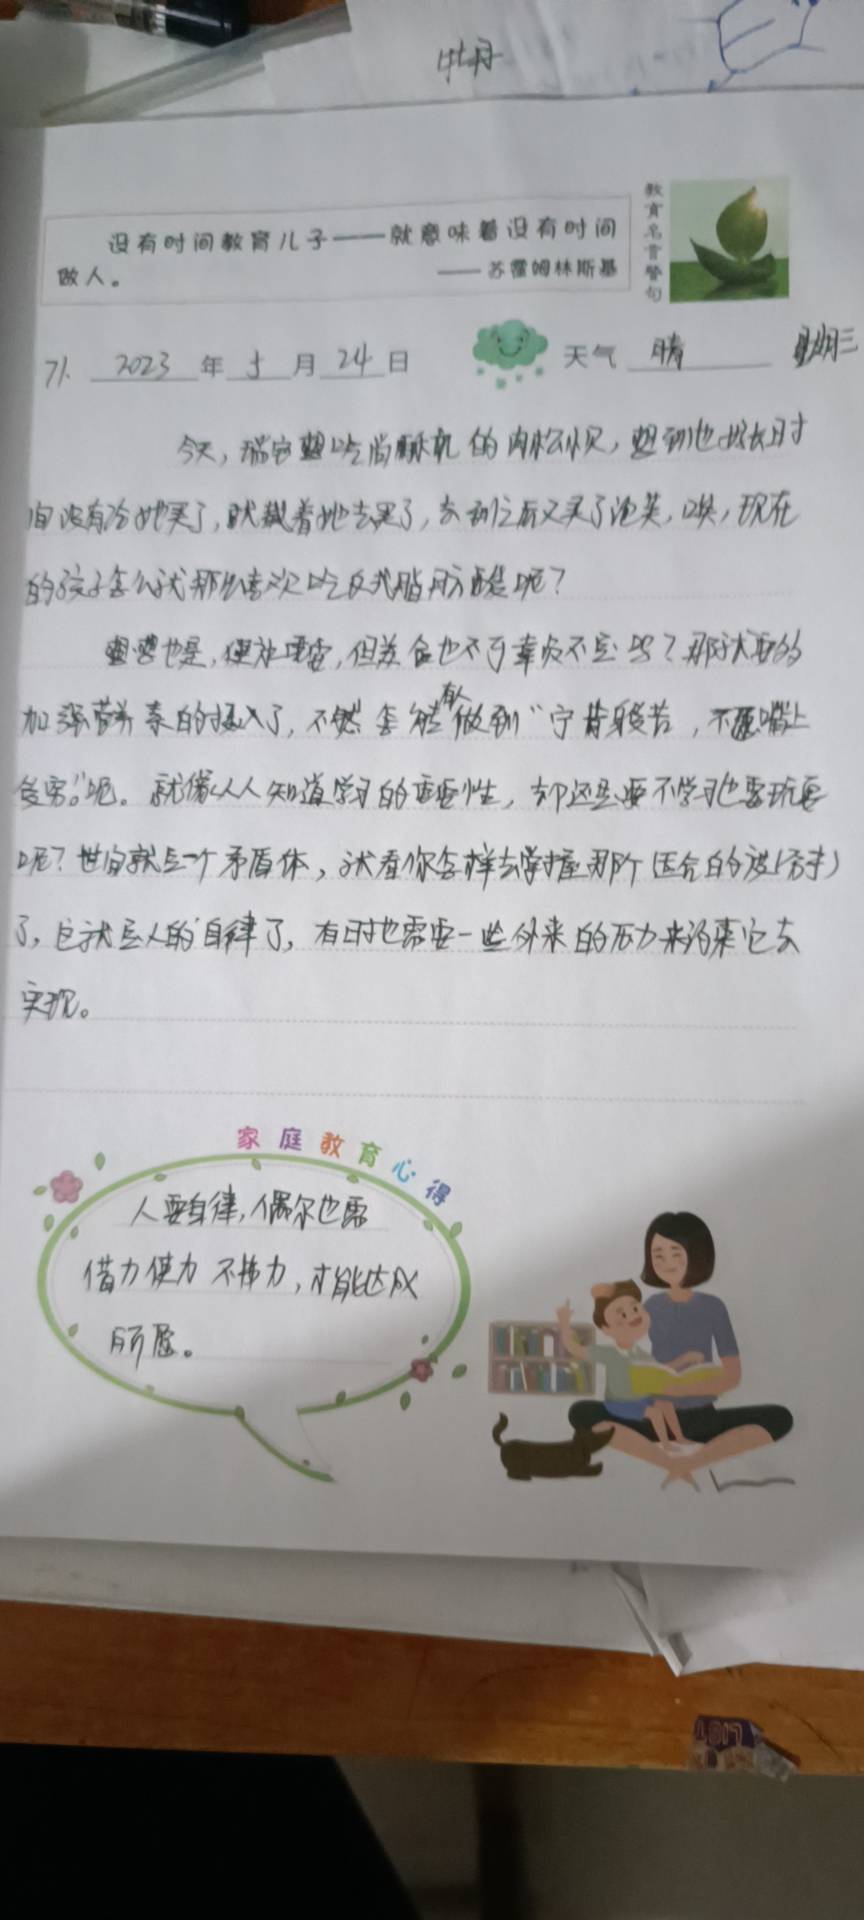 牡丹
没有时间教育儿子——就意味着没有时间
做人。 ——苏霍姆林斯基
教育名言警句
71. 2023 年 5 月 24 日 天气 晴 星期三
今天，瑞安想吃尚 的肉松小贝，想到也好长时
间没有给她买了，就载着她去买了，去到之后又买了泡芙，现在
的孩子怎么就那么喜欢吃反式脂肪酸呢？
想想也是，便社 ，但美食也不可辜负不是吗？那就要的
加强营养素的摄入了，不然怎能有人做到“宁肯身受苦，不愿嘴上
受穷”呢。就像人人知道学习的重要性，却还是要不学习也要玩耍
呢？世间就是一个矛盾体，就看你怎样去掌握那个适合的度（分寸）
了，这就是人的自律了，有时也需要一些外来的压力来约束它去
实现。
家庭教育心得
人要自律，偶尔也需
借力使力不费力，才能达成
所愿。